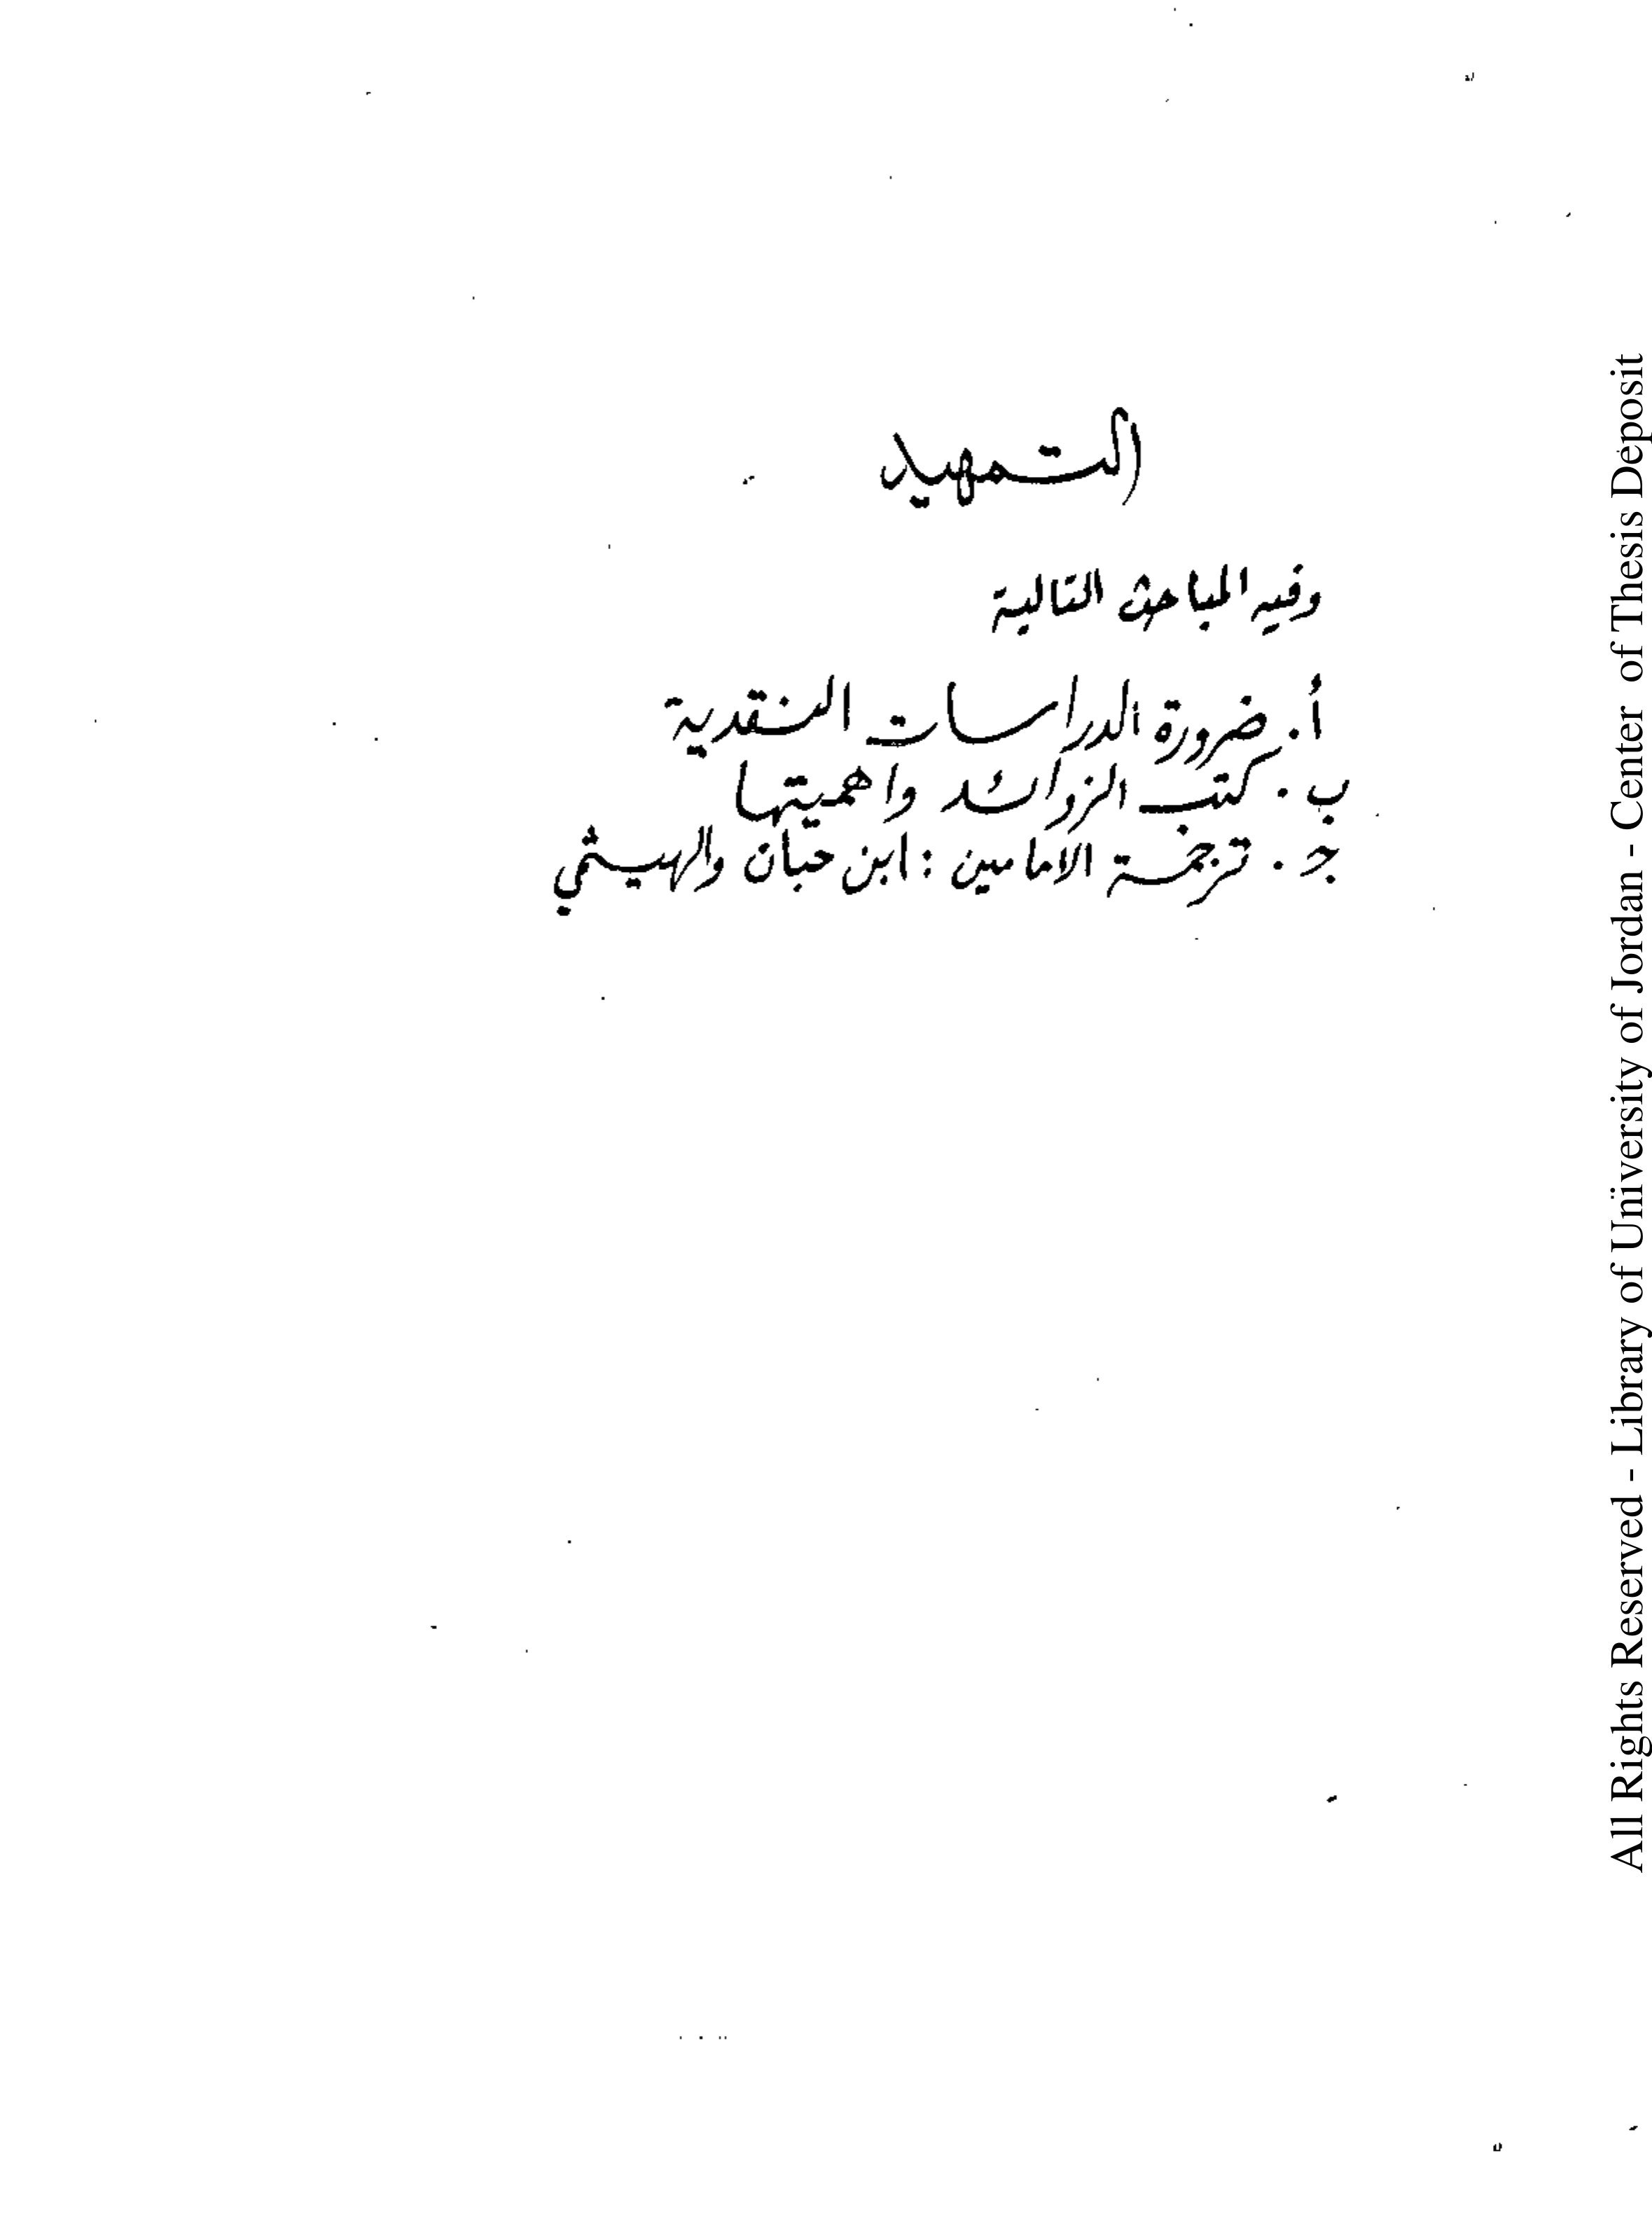 التمهيد
وفيه المباحث التالية
أ. ضرورة الدراسات النقدية
ب. كتب الزوائد واهميتها
جـ. ترجمة الامامين : ابن حبان والهيثمي
All Rights Reserved - Library of University of Jordan - Center of Thesis Deposit